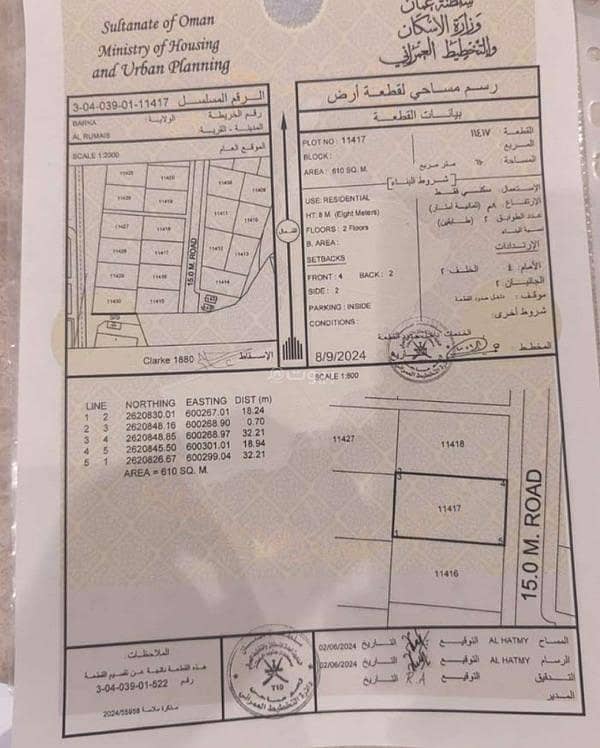 Sultanate of Oman
Ministry of Housing
and Urban Planning
سلطنة عمان
وزارة الإسكان
والتخطيط العمراني
الرقم المسلسل 3-04-039-01-11417
رقم الخريطة
الولاية: BARKA
المدينة - القرية: AL RUMAIS
الموقع العام SCALE 1:2000
11417
11412
11413
11414
11415
11430
15.0 M. ROAD
Clarke 1880 الاسقاط
الشمال
رسم مساحي لقطعة أرض
بيانات القطعة
PLOT NO : 11417 القطعة ١١٤١٧
BLOCK : المربع
AREA : 610 SQ. M. المساحة ٦١٠ متر مربع
[شروط البناء]
USE: RESIDENTIAL الإستعمال: سكني فقط
HT: 8 M (Eight Meters) الإرتفاع: ٨م (ثمانية أمتار)
FLOORS : 2 Floors عدد الطوابق: ٢ (طابقين)
B. AREA : نسبة البناء
SETBACKS الإرتدادات
FRONT : 4 BACK : 2 الأمام: ٤ الخلف: ٢
SIDE : 2 الجانبان: ٢
PARKING : INSIDE موقف: داخل حدود القطعة
CONDITIONS : شروط أخرى:
8/9/2024 التاريخ
المخطط
SCALE 1:600
LINE NORTHING EASTING DIST (m)
1 2 2620830.01 600267.01 18.24
2 3 2620848.16 600268.90 0.70
3 4 2620848.85 600268.97 32.21
4 5 2620845.50 600301.01 18.94
5 1 2620826.67 600299.04 32.21
AREA = 610 SQ. M.
11427
11418
11417
11416
3
4
1
5
15.0 M. ROAD
الملاحظات
هذه القطعة ناتجة عن تقسيم القطعة
رقم 3-04-039-01-522
مذكرة سلامة 2024/55958
المساح AL HATMY التوقيع التاريخ 02/06/2024
الرسام AL HATMY التوقيع التاريخ 02/06/2024
التدقيق التوقيع R.A التاريخ
المدير